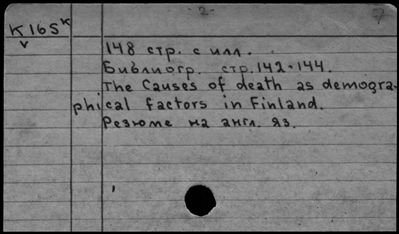 -2-
7
K16SK
v
148 стр. с илл.
Библиогр. стр. 142-144.
The Causes of death as demogra-
phical factors in Finland.
Резюме на англ. яз.